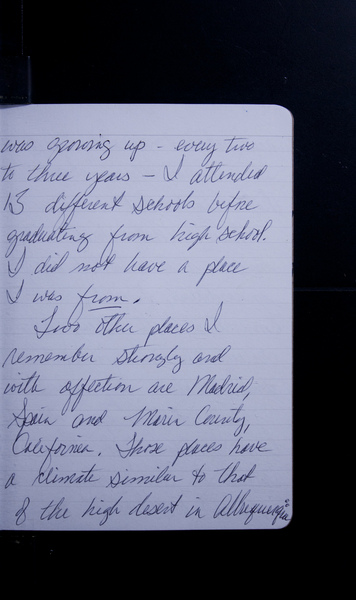 was growing up - every two
to three years - I attended
13 different schools before
graduating from high school.
I did not have a place
I was from.
Two other places I
remember strongly and
with affection are Madrid,
Spain and Marin County,
California. Those places have
a climate similar to that
of the high desert in Albuquerque